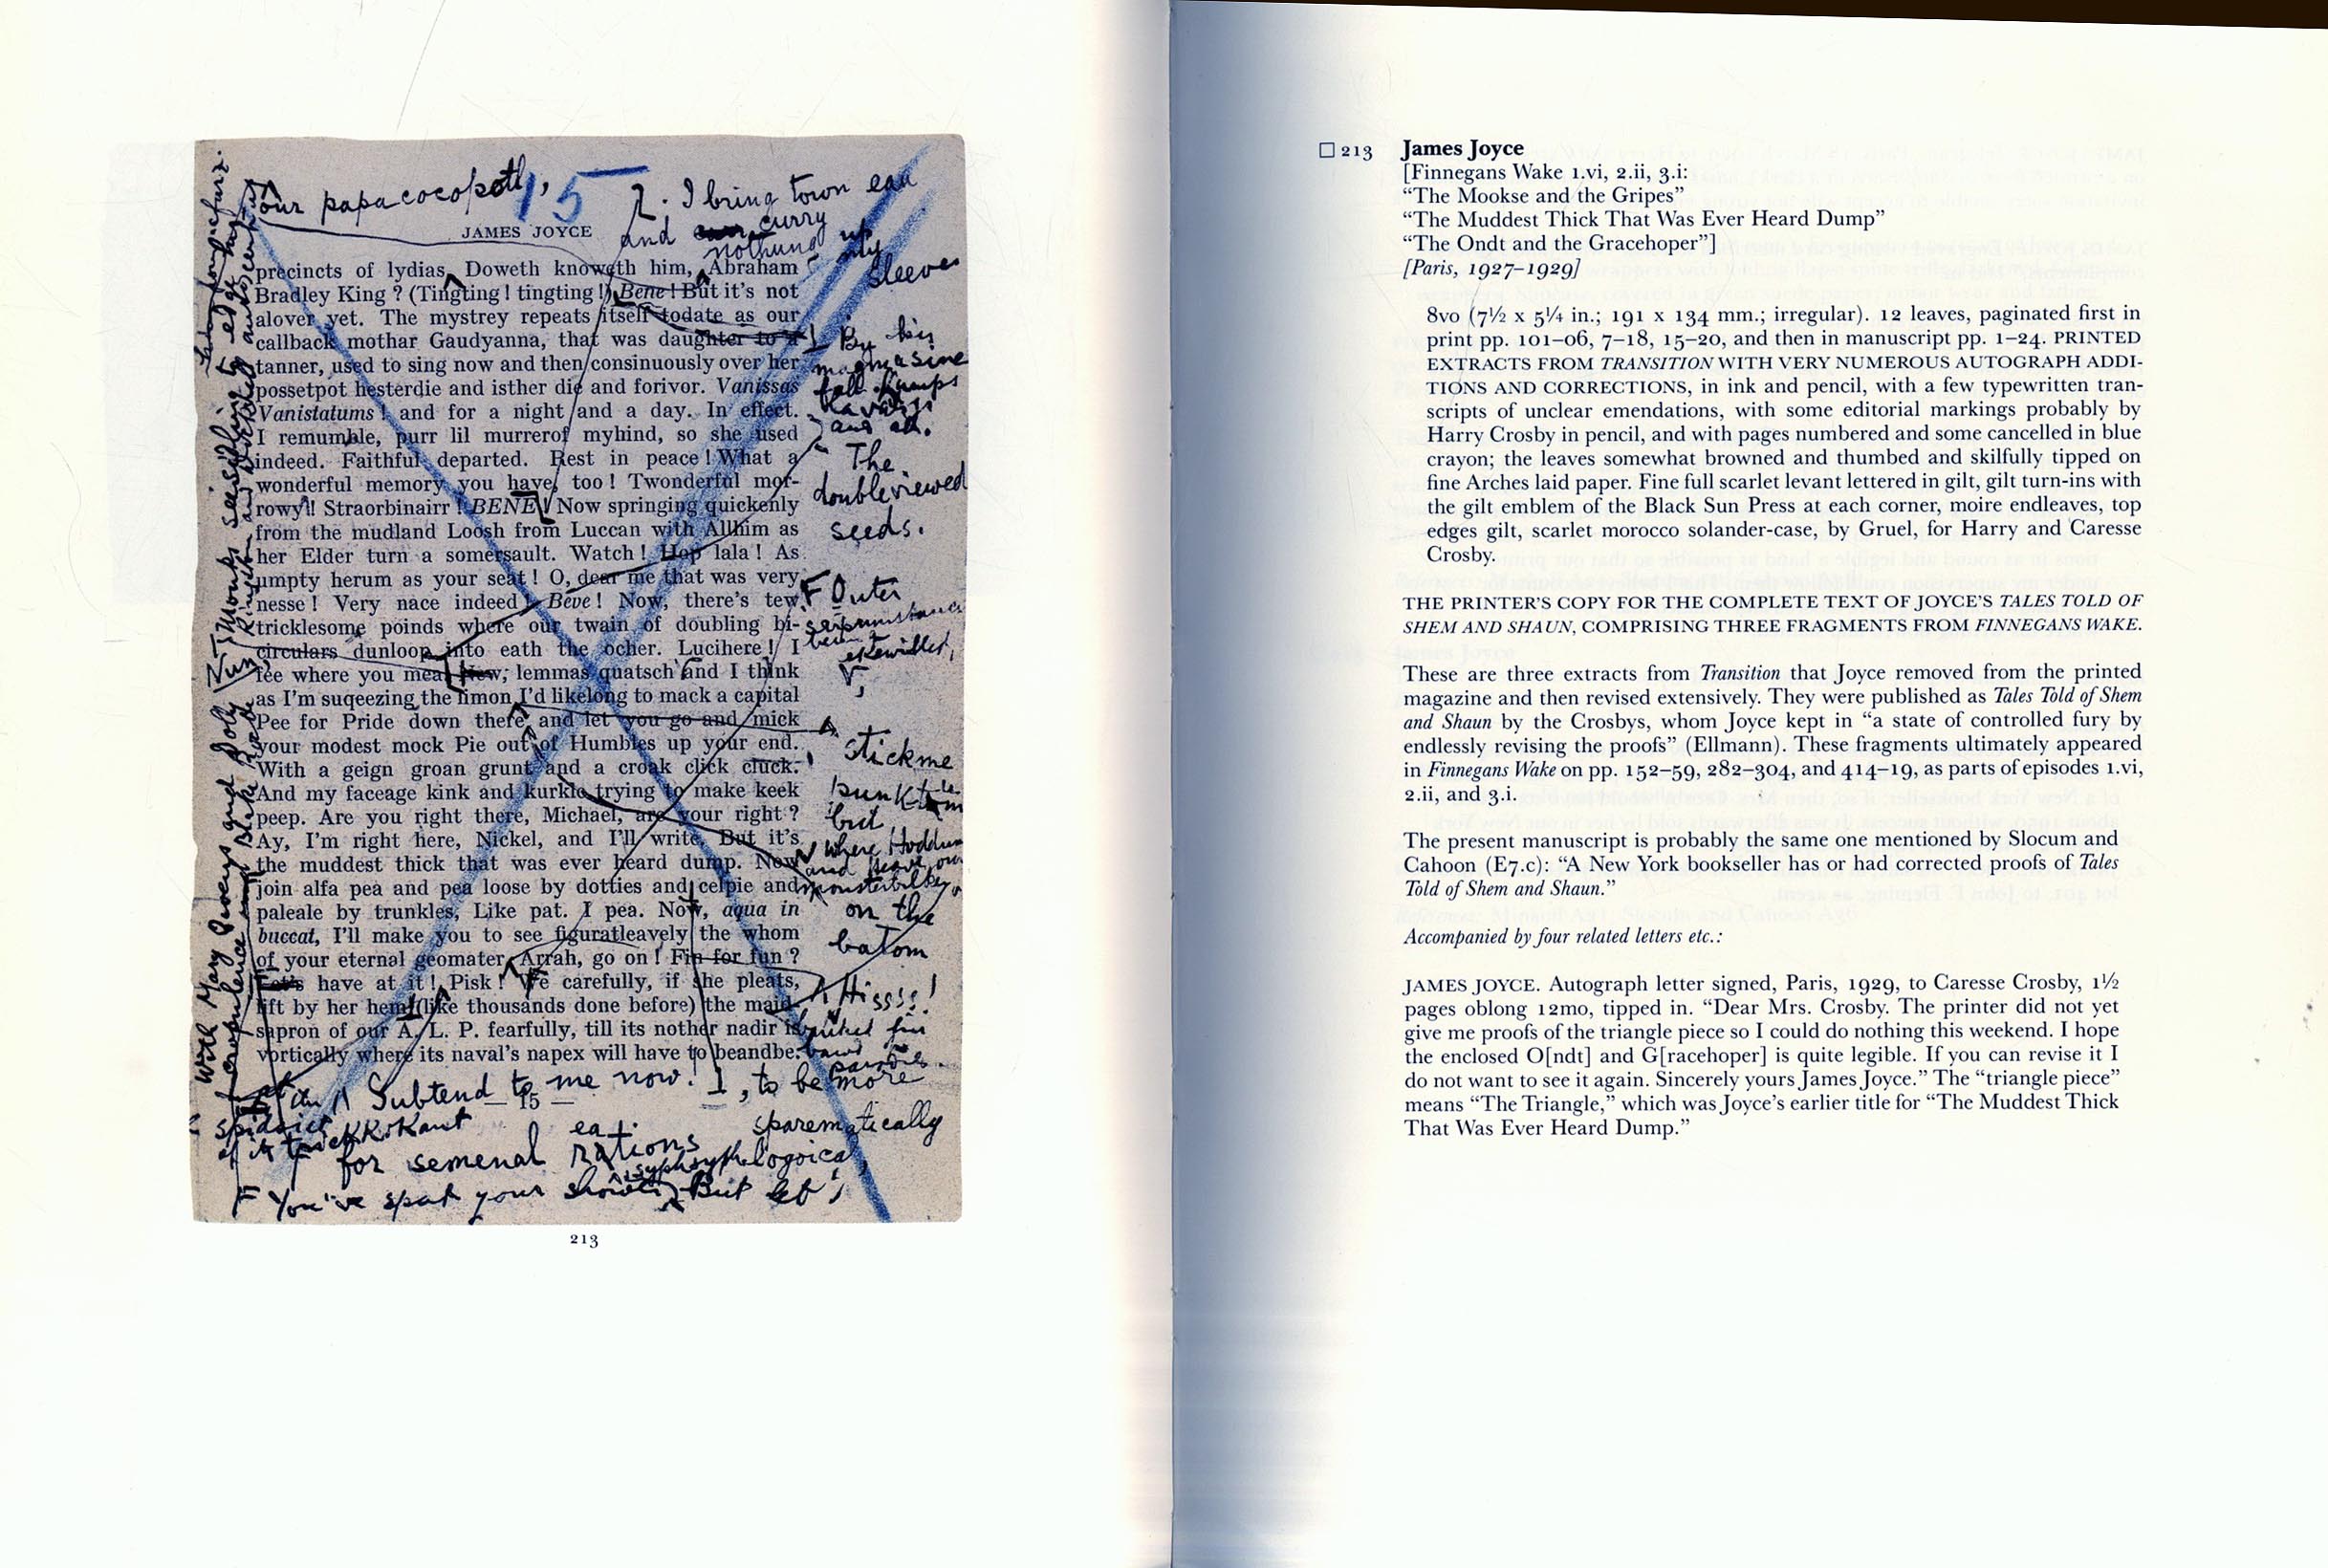 our papa cocopotl,
15
2. I bring town eau
and curry
nothung up
my
sleeves
JAMES JOYCE
precincts of lydias, Doweth knoweth him, Abraham
Bradley King ? (Tingting ! tingting !) Bene ! But it's not
alover yet. The mystrey repeats itself todate as our
callback mothar Gaudyanna, that was daughter to a
tanner, used to sing now and then consinuously over her
possetpot hesterdie and isther die and forivor. Vanissas
Vanistatums ! and for a night and a day. In effect.
I remumble, purr lil murrerof myhind, so she used
indeed. Faithful departed. Rest in peace ! What a
wonderful memory you have, too ! Twonderful mor-
rowy! Straorbinairr ! BENE! Now springing quickenly
from the mudland Loosh from Luccan with Allhim as
her Elder turn a somersault. Watch ! Hop lala ! As
umpty herum as your seat ! O, dear me that was very
nesse ! Very nace indeed ! Beve ! Now, there's tew
tricklesome poinds where our twain of doubling bi-
circulars dunloop into eath the ocher. Lucihere ! I
fee where you mea. Now, lemmas quatsch and I think
as I'm suqeezing the limon I'd likelong to mack a capital
Pee for Pride down there and let you go and mick
your modest mock Pie out of Humbles up your end.
With a geign groan grunt and a croak click cluck.
And my faceage kink and kurkle trying to make keek
peep. Are you right there, Michael, are your right ?
Ay, I'm right here, Nickel, and I'll write. But it's
the muddest thick that was ever heard dump. Now
join alfa pea and pea loose by dotties and celpie and
paleale by trunkles, Like pat. I pea. Now, aqua in
buccat, I'll make you to see figuratleavely the whom
of your eternal geomater. Arrah, go on ! Fin for fun ?
Let's have at it ! Pisk ! We carefully, if she pleats,
lift by her hem (like thousands done before) the maid-
sapron of our A. L. P. fearfully, till its nother nadir is
vortically where its naval's napex will have to beandbe.
By his
magmasine
fall.
and all.
The
doubleviewed
seeds.
Outer
stickme
punktum
but
where Hoddum
and
on the
batom
Hisss!
Subtend to me now!
— 15 —
, to be more
sparematically
logoical
for semenal rations
You've spat your shower But let
213
□ 213 James Joyce
[Finnegans Wake 1.vi, 2.ii, 3.i:
“The Mookse and the Gripes”
“The Muddest Thick That Was Ever Heard Dump”
“The Ondt and the Gracehoper”]
[Paris, 1927–1929]
8vo (7½ x 5¼ in.; 191 x 134 mm.; irregular). 12 leaves, paginated first in
print pp. 101–06, 7–18, 15–20, and then in manuscript pp. 1–24. PRINTED
EXTRACTS FROM TRANSITION WITH VERY NUMEROUS AUTOGRAPH ADDI-
TIONS AND CORRECTIONS, in ink and pencil, with a few typewritten tran-
scripts of unclear emendations, with some editorial markings probably by
Harry Crosby in pencil, and with pages numbered and some cancelled in blue
crayon; the leaves somewhat browned and thumbed and skilfully tipped on
fine Arches laid paper. Fine full scarlet levant lettered in gilt, gilt turn-ins with
the gilt emblem of the Black Sun Press at each corner, moire endleaves, top
edges gilt, scarlet morocco solander-case, by Gruel, for Harry and Caresse
Crosby.
THE PRINTER'S COPY FOR THE COMPLETE TEXT OF JOYCE'S TALES TOLD OF
SHEM AND SHAUN, COMPRISING THREE FRAGMENTS FROM FINNEGANS WAKE.
These are three extracts from Transition that Joyce removed from the printed
magazine and then revised extensively. They were published as Tales Told of Shem
and Shaun by the Crosbys, whom Joyce kept in “a state of controlled fury by
endlessly revising the proofs” (Ellmann). These fragments ultimately appeared
in Finnegans Wake on pp. 152–59, 282–304, and 414–19, as parts of episodes 1.vi,
2.ii, and 3.i.
The present manuscript is probably the same one mentioned by Slocum and
Cahoon (E7.c): “A New York bookseller has or had corrected proofs of Tales
Told of Shem and Shaun.”
Accompanied by four related letters etc.:
JAMES JOYCE. Autograph letter signed, Paris, 1929, to Caresse Crosby, 1½
pages oblong 12mo, tipped in. “Dear Mrs. Crosby. The printer did not yet
give me proofs of the triangle piece so I could do nothing this weekend. I hope
the enclosed O[ndt] and G[racehoper] is quite legible. If you can revise it I
do not want to see it again. Sincerely yours James Joyce.” The “triangle piece”
means “The Triangle,” which was Joyce's earlier title for “The Muddest Thick
That Was Ever Heard Dump.”